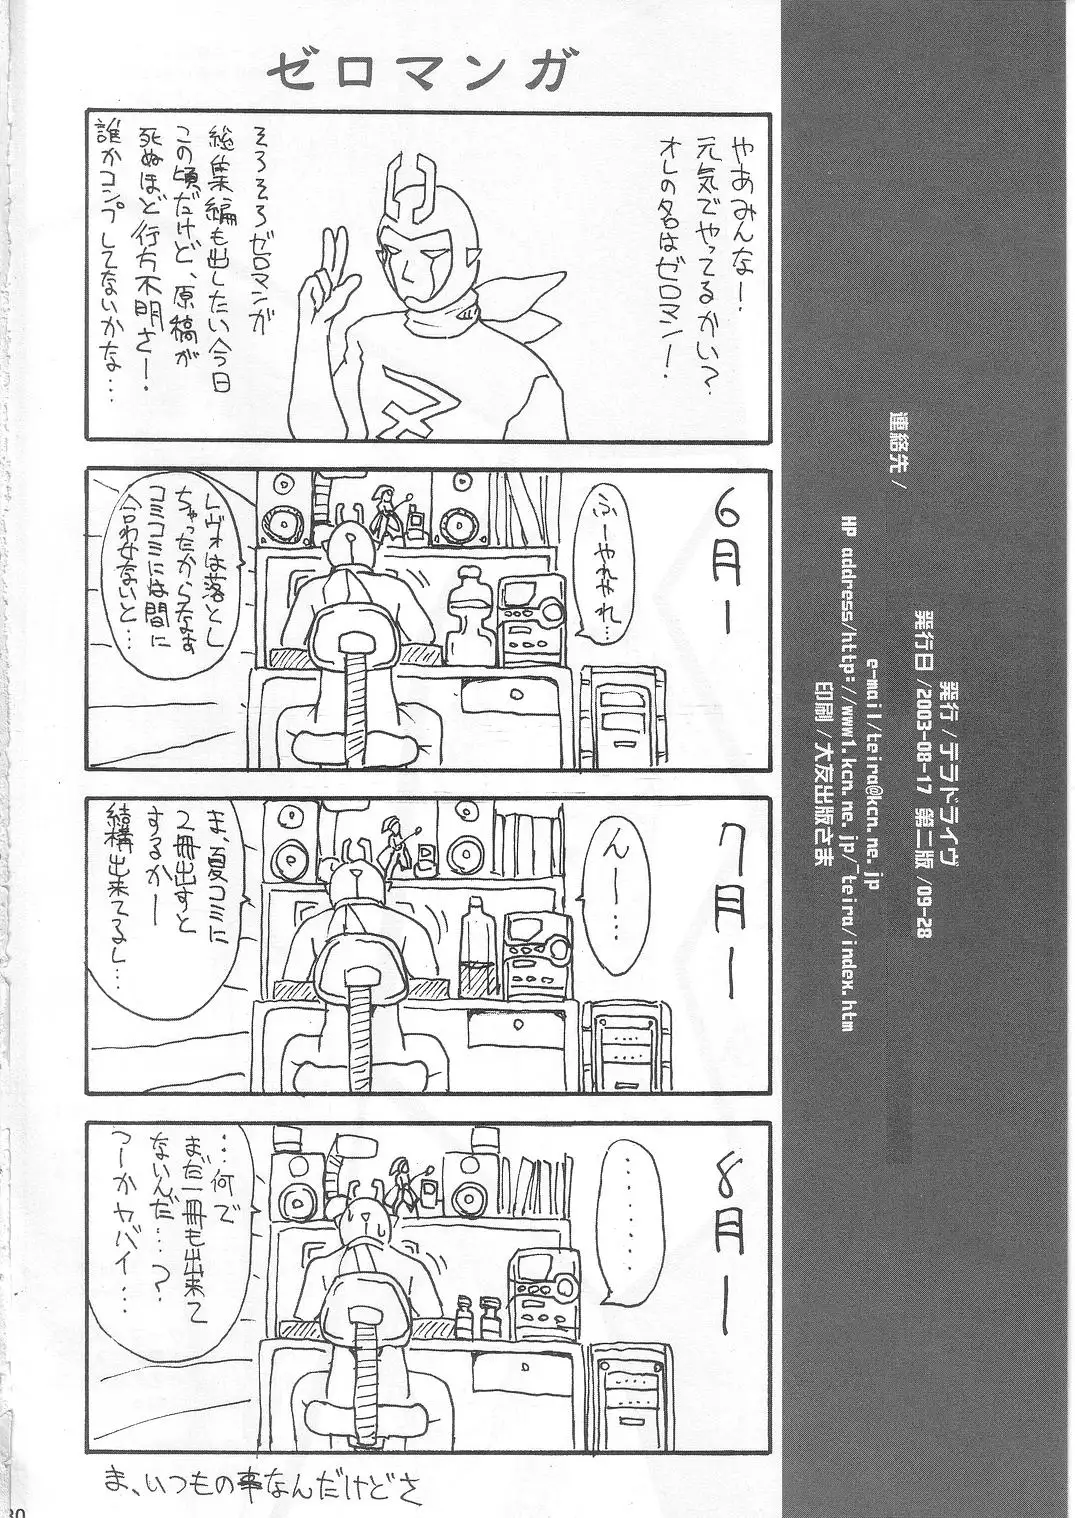 ゼロマンガ
やあみんな！
元気でやってるかい？
オレの名はゼロマン！
そろそろゼロマンガ
総集編も出したい今日
この頃だけど、原稿が
死ぬほど行方不明さー！
誰かコンプしてないかな…
6月ー
ふーやれやれ…
レヴォは落とし
ちゃったからなぁ
コミコミには間に
合わないと…
7月ー
んー…
ま、夏コミに
2冊出すと
するかー
結構出来てるし…
8月ー
……
…何で
まだ一冊も出来て
ないんだ…？
つーかヤバイ…
ま、いつもの事なんだけどさ
30
発行/テラドライヴ
発行日/2003-08-17 第二版/09-28
連絡先/
e-mail/teira@kcn.ne.jp
HP address/http://www1.kcn.ne.jp/~teira/index.htm
印刷/大友出版さま